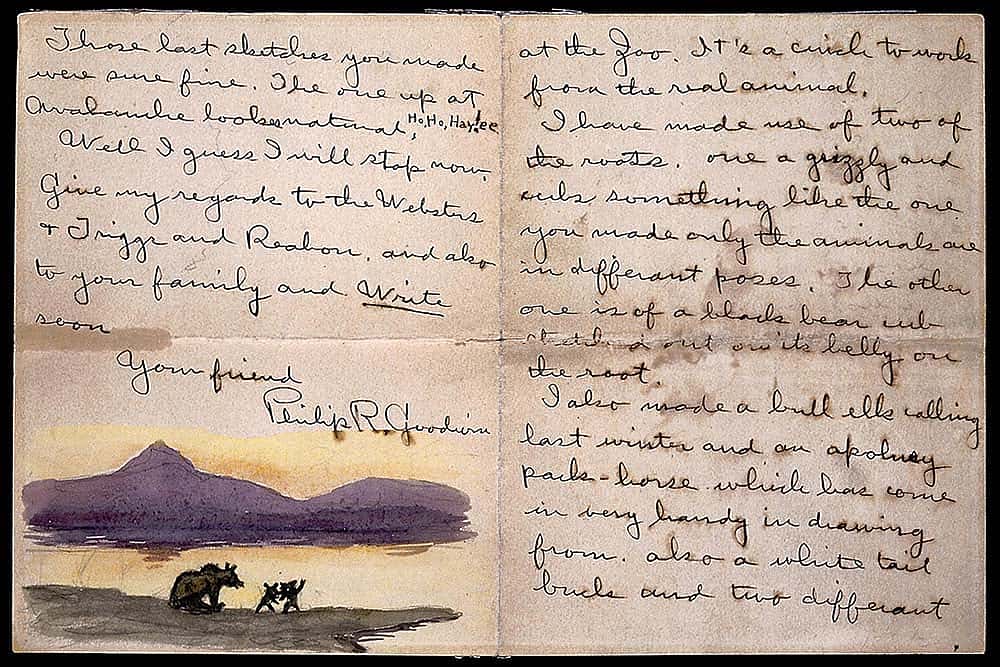 Those last sketches you made
were sure fine. The one up at
Avalanche looks natural, Ho, Ho, Hay! ee
Well I guess I will stop now.
Give my regards to the Websters
+ Triggs and Reabon, and also
to your family and Write
soon
Your friend
Philip R. Goodwin
at the Zoo. It's a cinch to work
from the real animal.
I have made use of two of
the roots. one a grizzly and
cubs something like the one
you made only the animals are
in differant poses. The other
one is of a black bear cub
out on its belly on
the root.
I also made a bull elk calling
last winter and an
pack-horse which has come
in very handy in drawing
from. also a white tail
buck and two differant